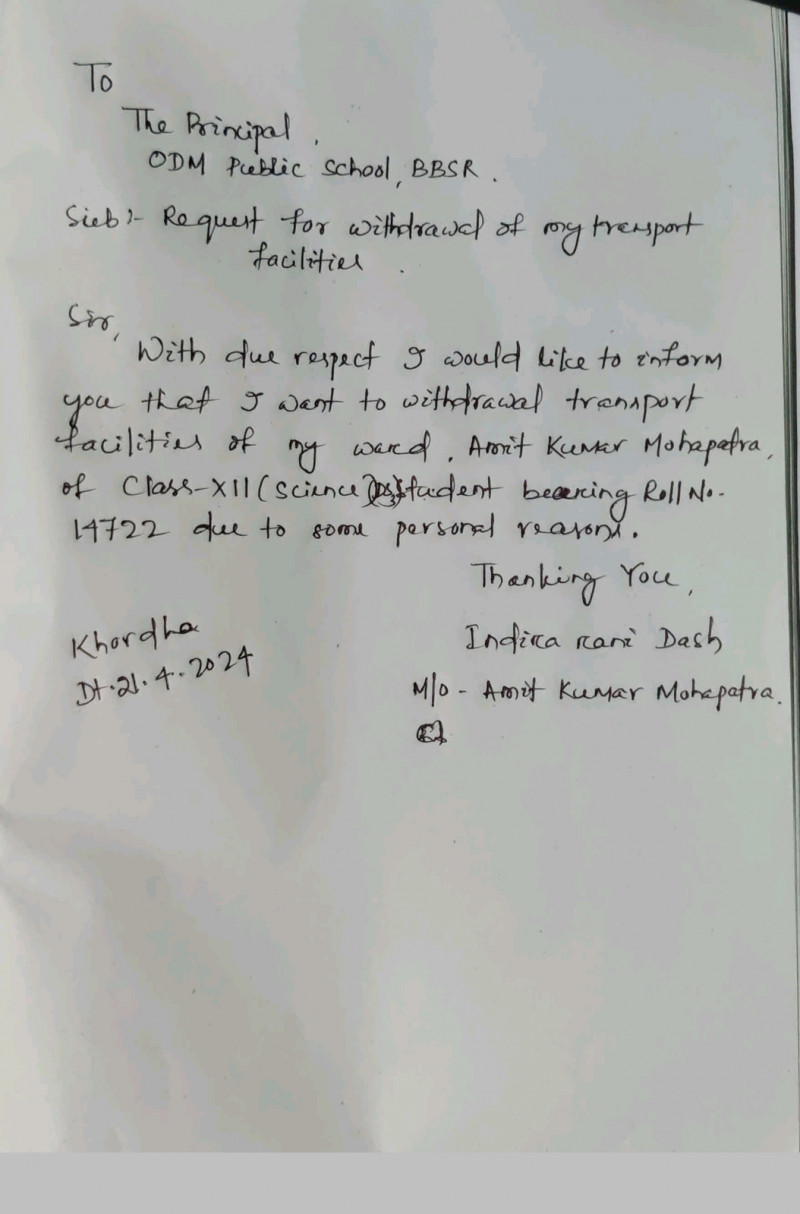 To
The Principal,
ODM Public School, BBSR.
Sub:- Request for withdrawal of my transport
facilities.
Sir,
With due respect I would like to inform
you that I want to withdrawal transport
facilities of my ward, Amit Kumar Mohapatra,
of Class-XII (Science) student bearing Roll No.
14722 due to some personal reasons.
Thanking You,
Khordha
Indira rani Dash
Dt. 21.4.2024
M/O - Amit Kumar Mohapatra.